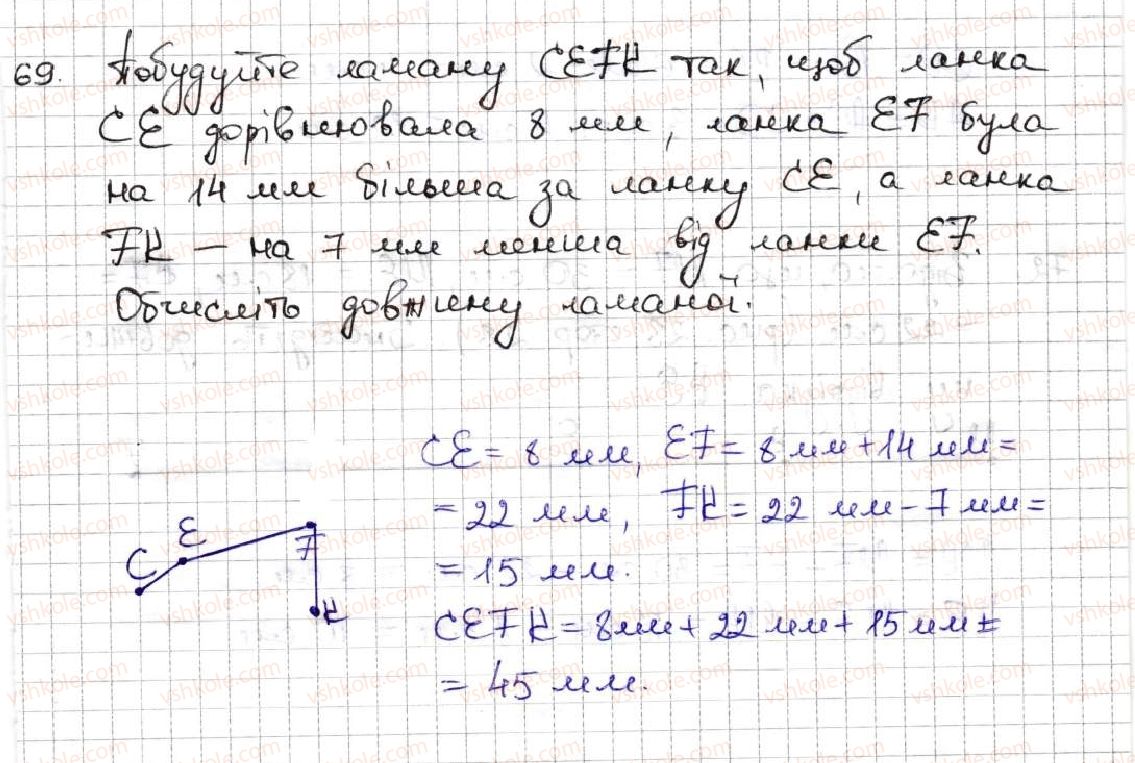 69. Побудуйте ламану CEFK так, щоб ланка
CE дорівнювала 8 мм, ланка EF була
на 14 мм більша за ланку CE, а ланка
FK – на 7 мм менша від ланки EF.
Обчисліть довжину ламаної.
CE = 8 мм, EF = 8 мм + 14 мм =
= 22 мм, FK = 22 мм – 7 мм =
= 15 мм.
CEFK = 8 мм + 22 мм + 15 мм =
= 45 мм.
C
E
F
K
vshkole.com